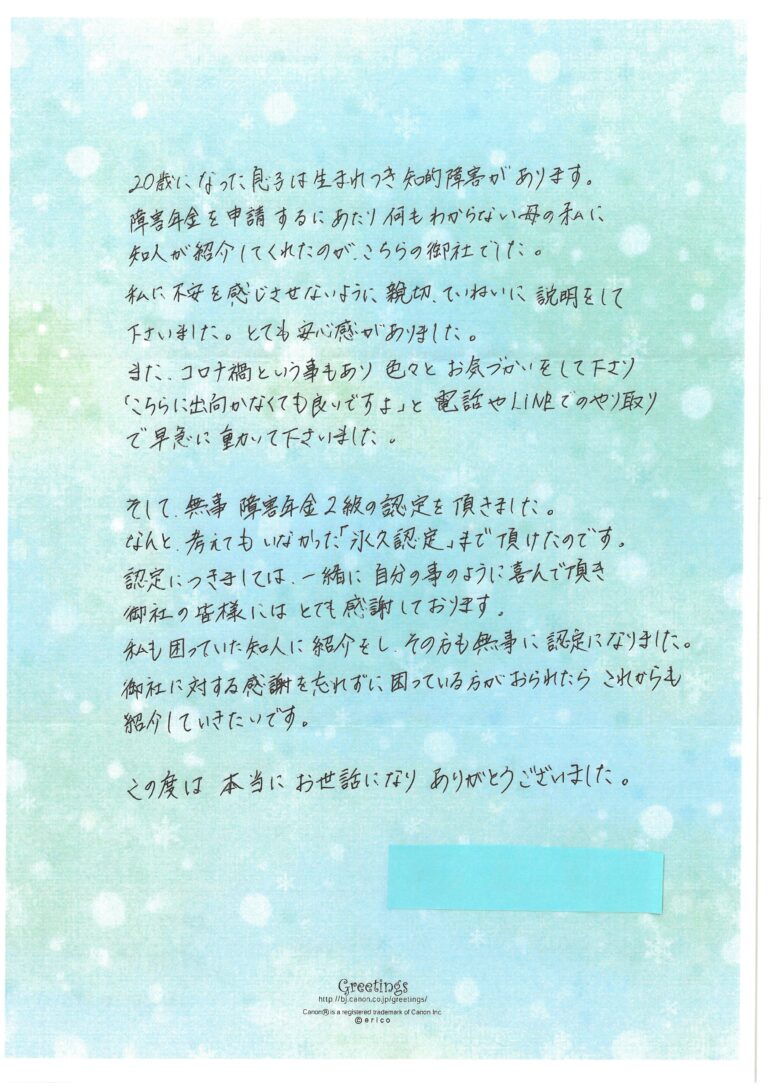 20歳になった息子は生まれつき知的障害があります。
障害年金を申請するにあたり何もわからない母の私に
知人が紹介してくれたのが、こちらの御社でした。
私に不安を感じさせないように、親切、ていねいに説明をして
下さいました。とても安心感がありました。
また、コロナ禍という事もあり色々とお気づかいをして下さり
「こちらに出向かなくても良いですよ」と電話やLINEでのやり取り
で早急に動いて下さいました。
そして、無事障害年金2級の認定を頂きました。
なんと、考えてもいなかった「永久認定」まで頂けたのです。
認定につきましては、一緒に自分の事のように喜んで頂き
御社の皆様にはとても感謝しております。
私も困っていた知人に紹介をし、その方も無事に認定になりました。
御社に対する感謝を忘れずに困っている方がおられたらこれからも
紹介していきたいです。
この度は本当にお世話になりありがとうございました。
Greetings
http://bj.canon.co.jp/greetings/
Canon® is a registered trademark of Canon Inc.
©erico